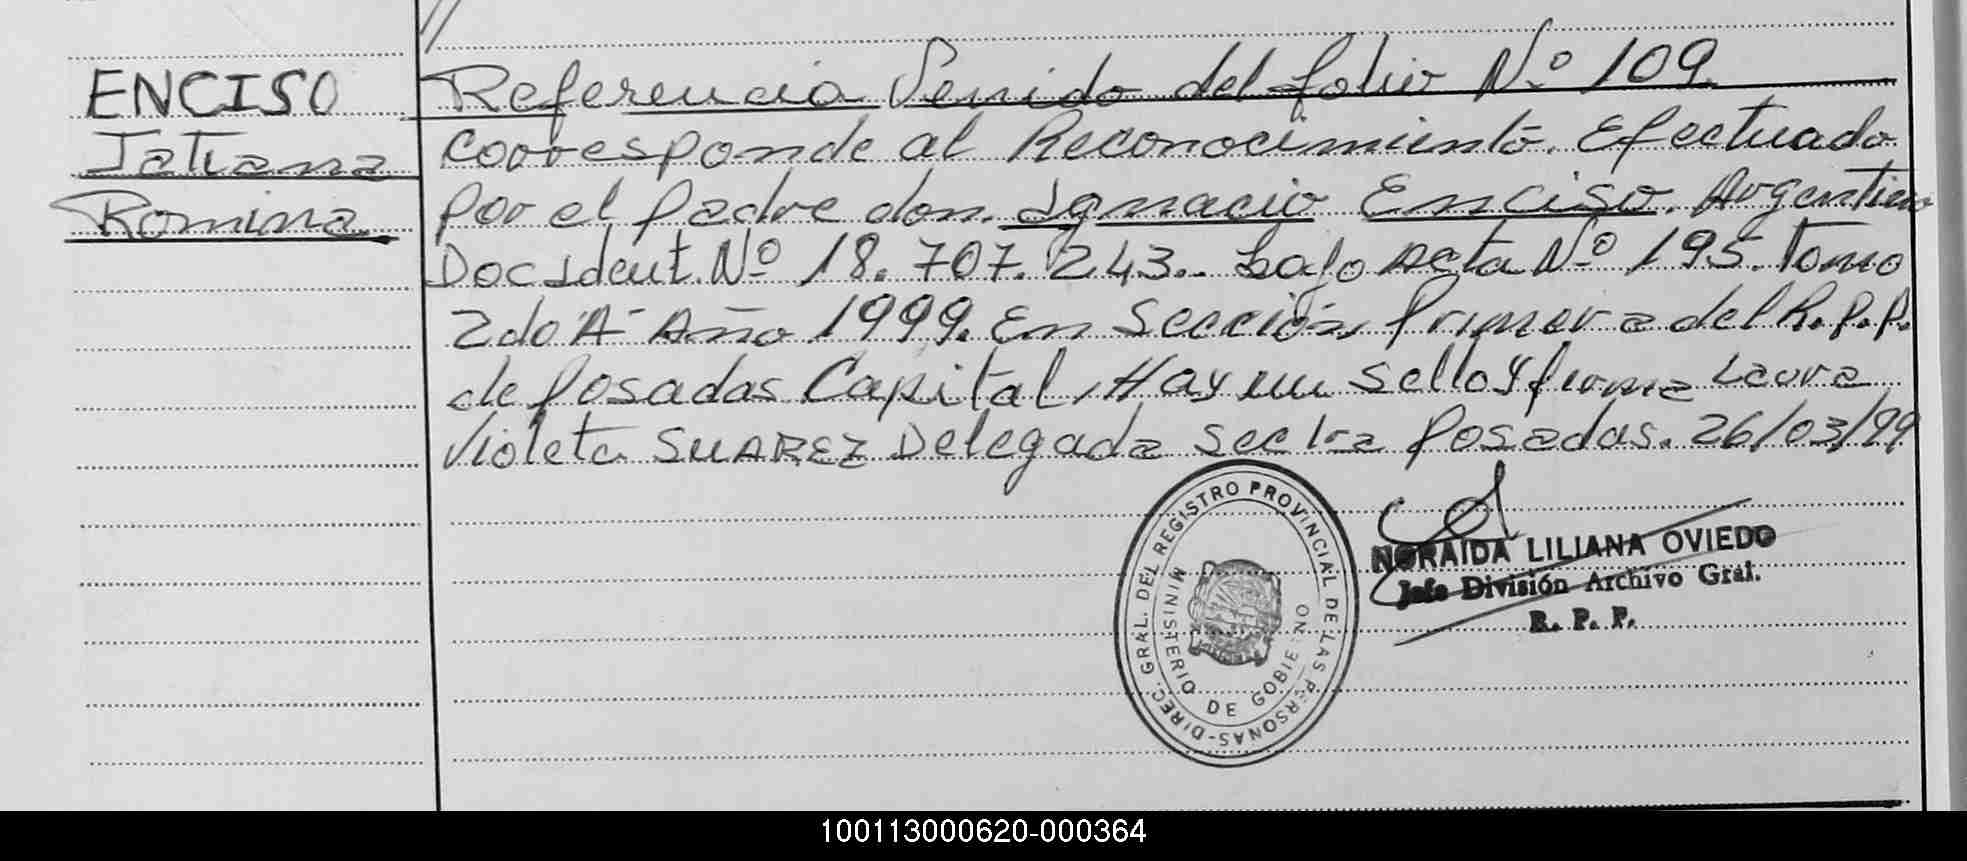 ENCISO
Tatiana
Romina
Referencia Venido del folio Nº 109
corresponde al Reconocimiento. Efectuado
por el padre don. Ignacio Enciso. Argentino
Doc Ident. Nº 18.707.243.. bajo acta Nº 195. Tomo
2do "A" Año 1999. En Sección Primera del R.P.P.
de Posadas Capital, Hay un sello y firma Laura
Violeta SUAREZ Delegada Sec 1ra Posadas. 26/03/99
DIREC. GRAL. DEL REGISTRO PROVINCIAL DE LAS PERSONAS-
MINISTERIO DE GOBIERNO
NORAIDA LILIANA OVIEDO
Jefe División Archivo Gral.
R. P. P.
100113000620-000364